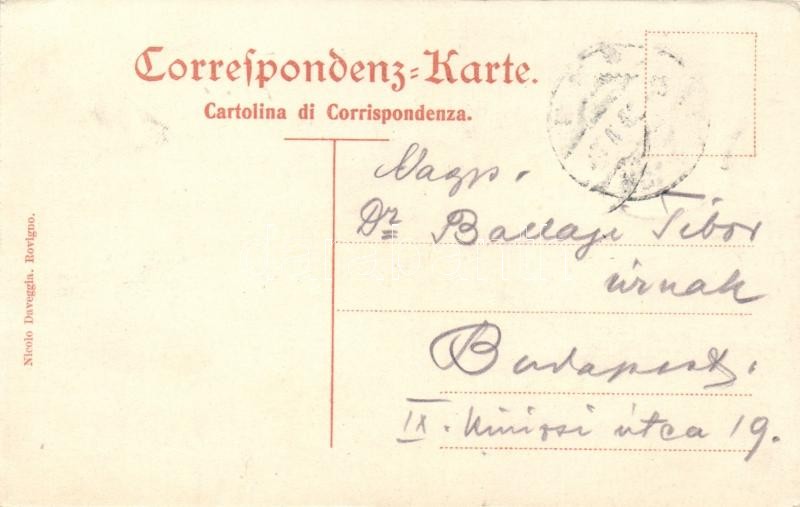 Correſpondenz=Karte.
Cartolina di Corrispondenza.
Nagys.
Dr Ballagi Tibor
úrnak
Budapest.
IX. Kinizsi útca 19.
Nicolo Daveggia. Rovigno.